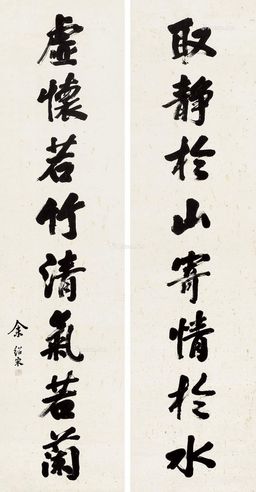 取静於山寄情於水
虚懷若竹清氣若蘭
余紹宋